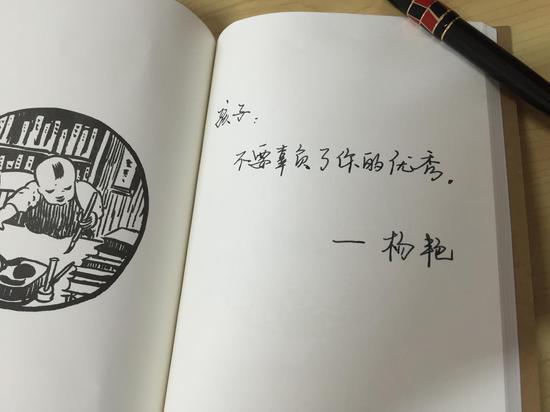 孩子：
不要辜负了你的优秀。
— 杨艳